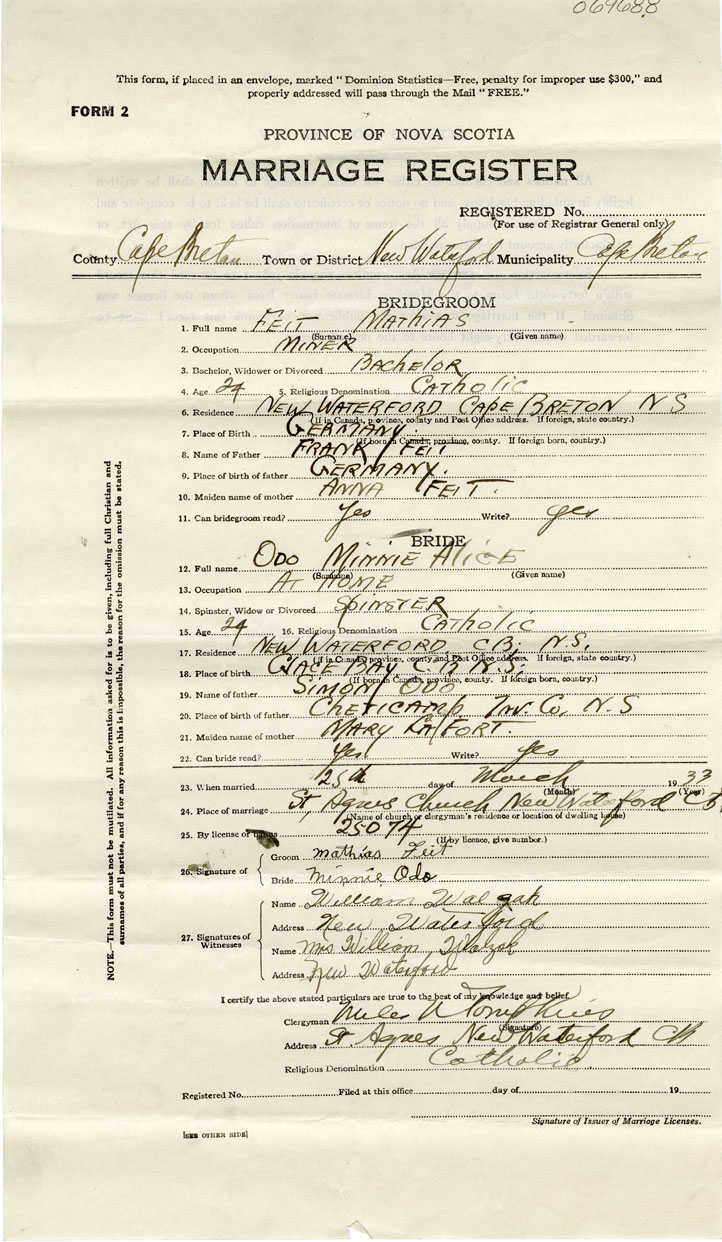 069688
This form, if placed in an envelope, marked "Dominion Statistics—Free, penalty for improper use $300," and
properly addressed will pass through the Mail "FREE."
FORM 2
PROVINCE OF NOVA SCOTIA
MARRIAGE REGISTER
REGISTERED No.
(For use of Registrar General only)
County Cape Breton Town or District New Waterford Municipality Cape Breton
BRIDEGROOM
1. Full name FEIT MATHIAS
(Surname) (Given name)
2. Occupation MINER
3. Bachelor, Widower or Divorced BACHELOR
4. Age 24 5. Religious Denomination CATHOLIC
6. Residence NEW WATERFORD CAPE BRETON N S
(If in Canada, province, county and Post Office address. If foreign, state country.)
7. Place of Birth GERMANY.
(If born in Canada, province, county. If foreign born, country.)
8. Name of Father FRANK FEIT
9. Place of birth of father GERMANY.
10. Maiden name of mother ANNA FEIT.
11. Can bridegroom read? Yes Write? yes
BRIDE
12. Full name ODO MINNIE ALICE
(Surname) (Given name)
13. Occupation AT HOME
14. Spinster, Widow or Divorced SPINSTER
15. Age 24 16. Religious Denomination CATHOLIC
17. Residence NEW WATERFORD, C.B, N.S,
(If in Canada, province, county and Post Office address. If foreign, state country.)
18. Place of birth GLACE BAY C.B N.S.
(If born in Canada, province, county. If foreign born, country.)
19. Name of father SIMON ODO
20. Place of birth of father CHETICAMP, Inv. Co, N.S
21. Maiden name of mother MARY LAFORT.
22. Can bride read? Yes Write? yes
23. When married 25th day of March 1933
(Month) (Year)
24. Place of marriage St, Agnes Church New Waterford CB.
(Name of church or clergyman's residence or location of dwelling house)
25. By license or banns 25074
(If by licence, give number.)
26. Signature of
Groom Mathias Feit
Bride Minnie Odo
27. Signatures of Witnesses
Name William Walzak
Address New Waterford
Name Mrs William Walzak
Address New Waterford
I certify the above stated particulars are true to the best of my knowledge and belief.
Clergyman Miles N Tompkins
(Signature)
Address St. Agnes New Waterford CB
Religious Denomination Catholic.
Registered No. Filed at this office day of 19
Signature of Issuer of Marriage Licenses.
[SEE OTHER SIDE]
NOTE.—This form must not be mutilated. All information asked for is to be given, including full Christian and
surnames of all parties, and if for any reason this is impossible, the reason for the omission must be stated.